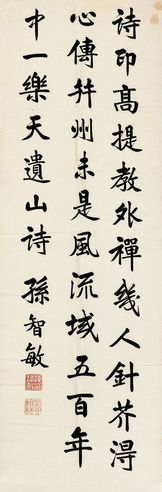 詩印高提教外禪幾人針芥得
心傳并州未是風流域五百年
中一樂天遺山詩 孫智敏